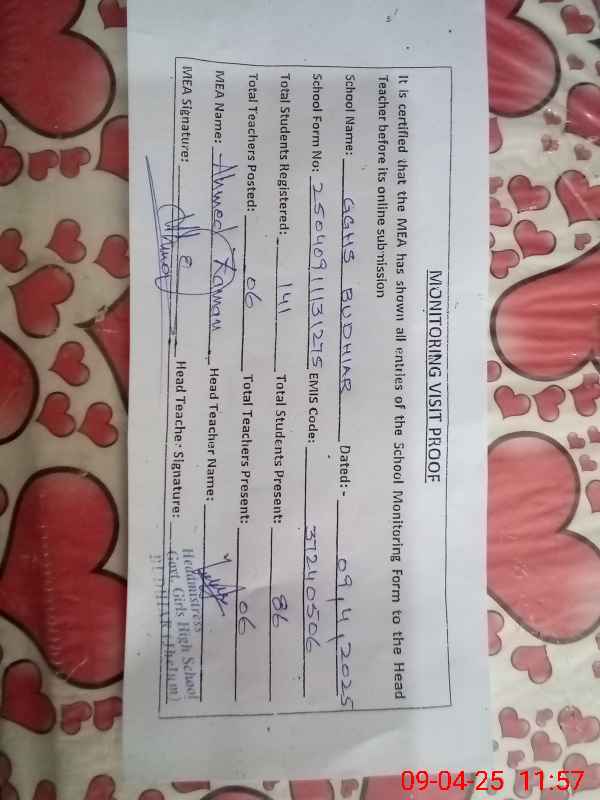 MONITORING VISIT PROOF
It is certified that the MEA has shown all entries of the School Monitoring Form to the Head
Teacher before its online submission
School Name: GGHS BUDHIAR Dated:- 09,4,2025
School Form No: 2504091131275 EMIS Code: 37240506
Total Students Registered: 141 Total Students Present: 86
Total Teachers Posted: 06 Total Teachers Present: 06
MEA Name: Ahmed Head Teacher Name:
MEA Signature: Head Teacher Signature:
Headmistress
Govt. Girls High School
BUDHIAR (Jhelum)
09-04-25 11:57